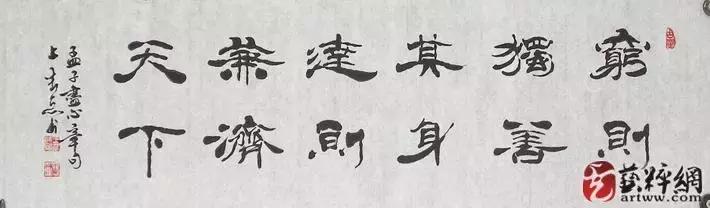 窮則
獨善
其身
達則
兼濟
天下
孟子盡心章句
上
藝粹網
artww.com